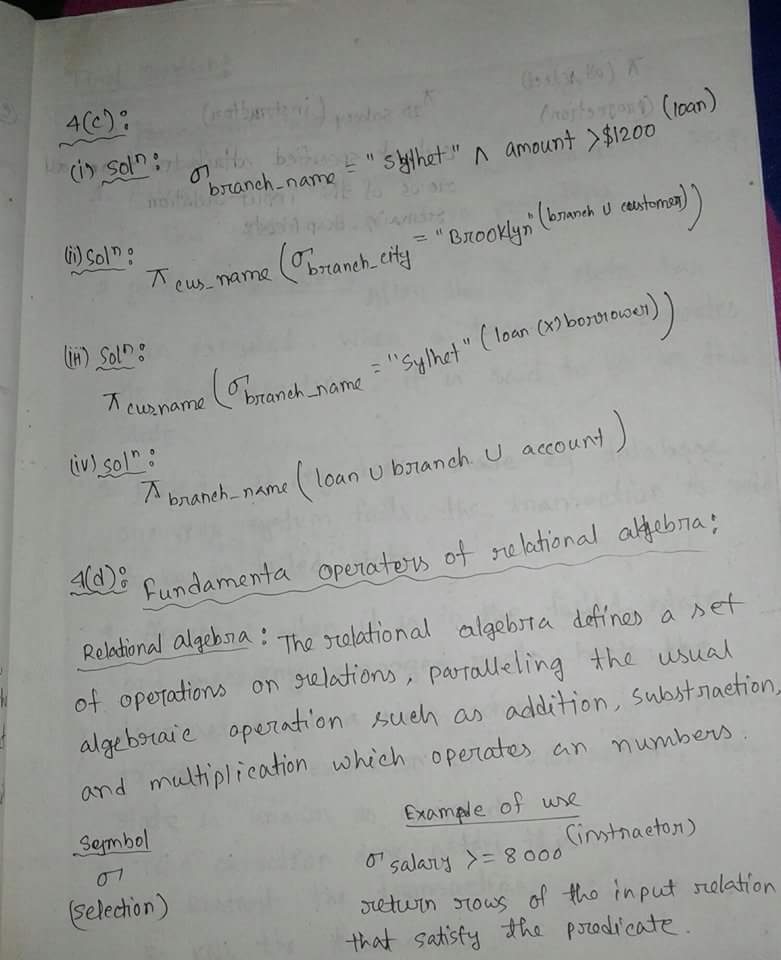 4(c):
(i) Solⁿ: σ branch_name = "Sylhet" ∧ amount >$1200 (loan)
(ii) Solⁿ:
π cus_name (σ branch_city = "Brooklyn" (branch ∪ customer))
(iii) Solⁿ:
π cusname (σ branch_name = "Sylhet" (loan (x) borrower))
(iv) Solⁿ:
π branch_name (loan ∪ branch ∪ account)
4(d): Fundamenta operaters of relational algebra:
Relational algebra: The relational algebra defines a set
of operations on relations, paralleling the usual
algebraic operation such as addition, substraction,
and multiplication which operates an numbers.
Symbol Example of use
σ σ salary >= 8000 (instractor)
(selection) return rows of the input relation
that satisfy the predicate.